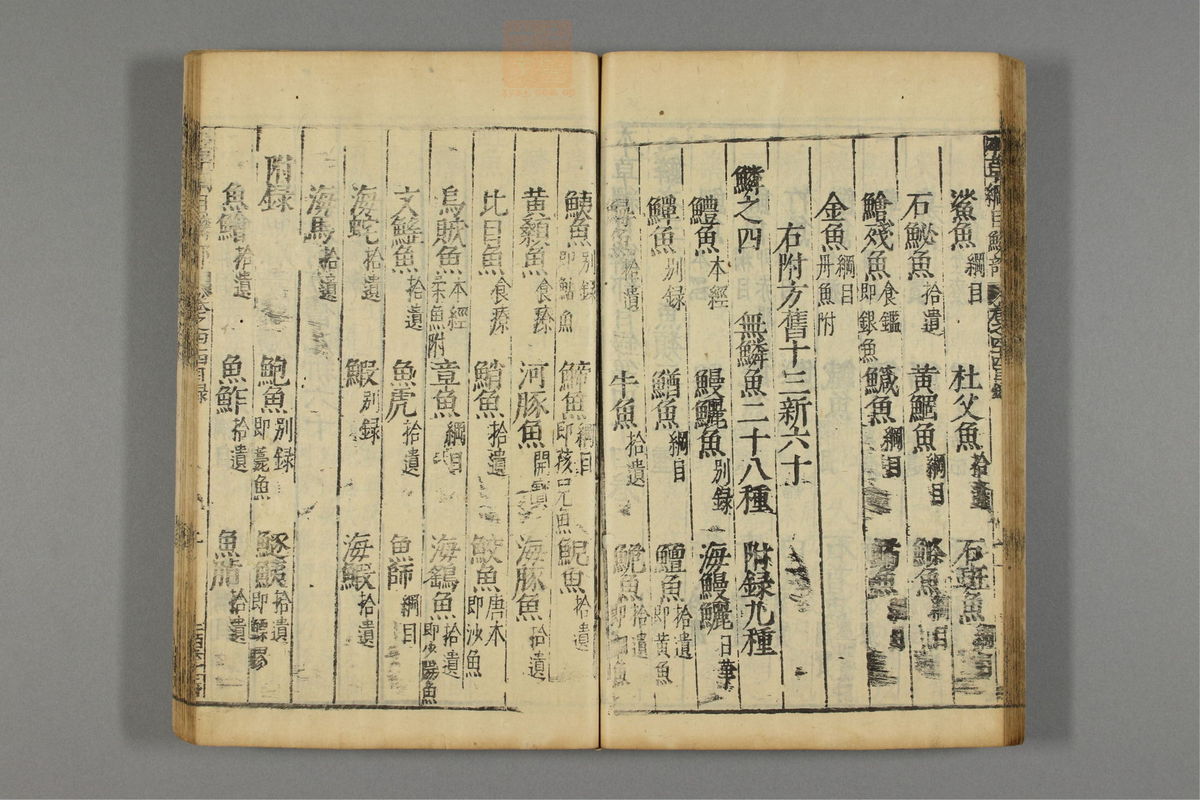 鯊魚 綱目 杜父魚 拾遺 石斑魚 綱目
石鮅魚 拾遺 黃𩶱魚 綱目 鰷魚 綱目
鱠殘魚 食鑑 即銀魚 鱵魚 綱目 鱊魚
金魚 綱目 丹魚附
右附方舊十三新六十
鱗之四 無鱗魚二十八種 附録九種
鱧魚 本經 鰻鱺魚 別録 海鰻鱺 日華
鱓魚 別録 鰌魚 綱目 鱣魚 拾遺 即黃魚
鱘魚 拾遺 牛魚 拾遺 鮠魚 拾遺
鮧魚 別録 即鮎魚 鯑魚 綱目 即孩兒魚 鯢魚 拾遺
黃顙魚 食療 河豚魚 開寶 海豚魚 拾遺
比目魚 食療 鮹魚 拾遺 鮫魚 唐本 即沙魚
烏賊魚 本經 柔魚附 章魚 綱目 海鷂魚 拾遺 即少陽魚
文鰩魚 拾遺 魚虎 拾遺 魚師 綱目
海蛇 拾遺 鰕 別録 海鰕 拾遺
海馬 拾遺
附録 鮑魚 別録 即薧魚 鱁鮧 拾遺 即鰾膠
魚鱠 拾遺 魚鮓 拾遺 魚脂 拾遺